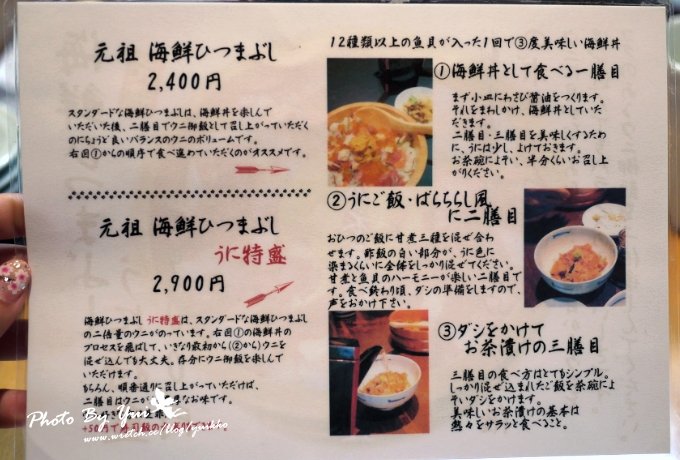 元祖 海鮮ひつまぶし
2,400円
スタンダードな海鮮ひつまぶしは、海鮮丼を楽しんで
いただいた後、二膳目でウニ御飯として召し上がっていただく
のにちょうど良いバランスのウニのボリュームです。
右図①からの順序で食べ進めていただくのがオススメです。
元祖 海鮮ひつまぶし
うに特盛
2,900円
海鮮ひつまぶし うに特盛は、スタンダードな海鮮ひつまぶし
の二倍量のウニがのっています。右図①の海鮮丼の
プロセスを飛ばして、いきなり最初から(②から)ウニを
混ぜ込んでも大丈夫。存分にウニ御飯を楽しんで
いただけます。
もちろん、順番通りに召し上がっていただけば、
二膳目はウニが
なお味です。
+50円で
Photo By Yui
www.wretch.cc/blog/yuikko
12種類以上の魚貝が入った1回で③度美味しい海鮮丼
①海鮮丼として食べる一膳目
まず小皿にわさび醤油をつくります。
それをまわしかけ、海鮮丼としていた
だきます。
二膳目・三膳目を美味しくするため
に、うには少し、よけておきます。
お茶碗によそい、半分くらいお召し上
がりください。
②うにご飯・ばらちらし風
に二膳目
おひつのご飯に甘煮三種を混ぜ合わ
せます。酢飯の白い部分が、うに色に
染まるくらいに全体をしっかり混ぜてください。
甘煮と魚貝のハーモニーが楽しい二膳目で
す。食べ終わり頃、ダシの準備をしますので、
声をおかけ下さい。
③ダシをかけて
お茶漬けの三膳目
三膳目の食べ方はとてもシンプル。
しっかり混ぜ込まれたご飯を茶碗によ
そいダシをかけます。
美味しいお茶漬けの基本は
熱々をサラッと食べること。